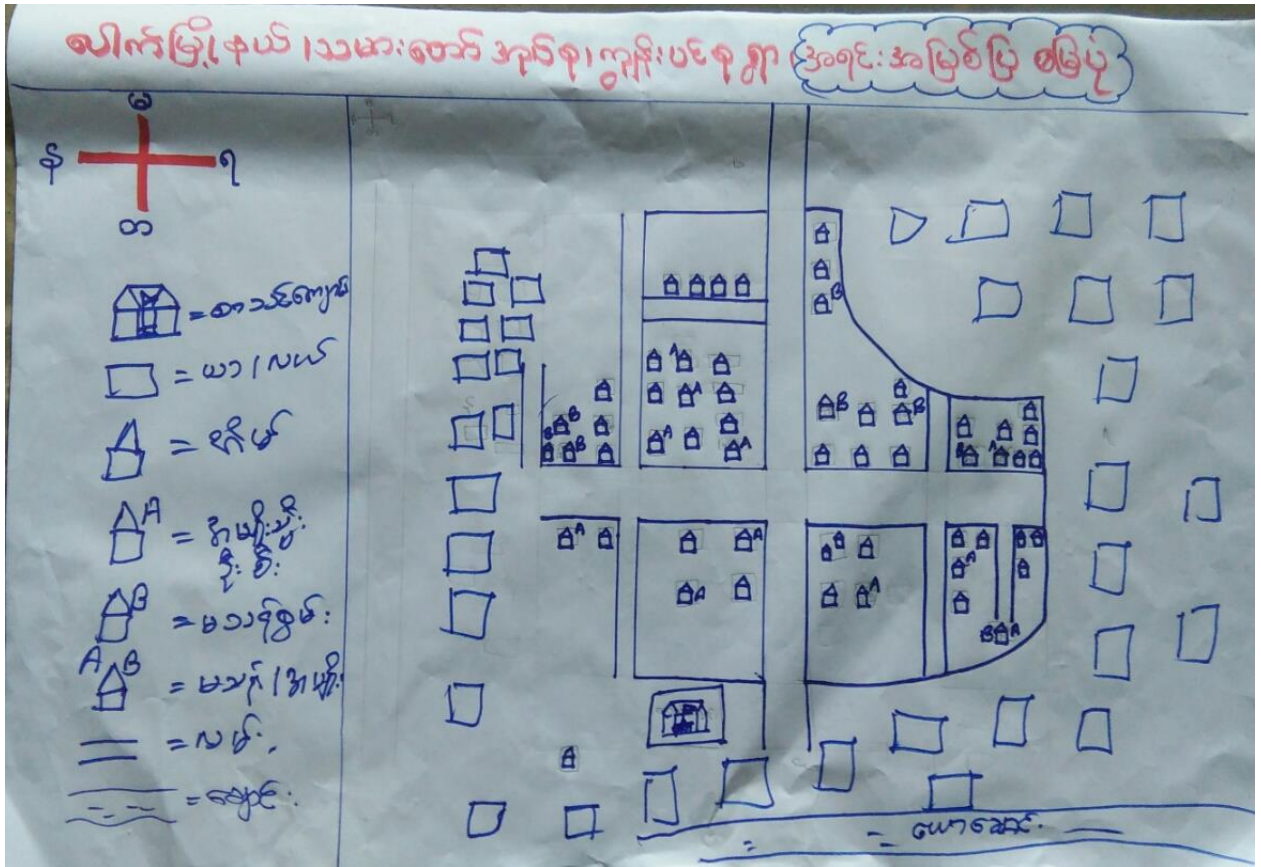 ပေါက်မြို့နယ်၊သမားတော်အုပ်စု၊ကျွန်းပင်စုရွာ အရင်းအမြစ်ပြ စမြေပုံ
မ
န
ရ
တ
= စာသင်ကျောင်း
= ယာ/လယ်
= အိမ်
A
= အမျိုးသမီးဦးစီး
B
= မသန်စွမ်း
A B
= မသန်/အမျိုး
= လမ်း
= ချောင်း
B
A
A
A
A
A
B
B
B
B
B
B
A
A
A
A
B
A
A
B A
ယောချောင်း